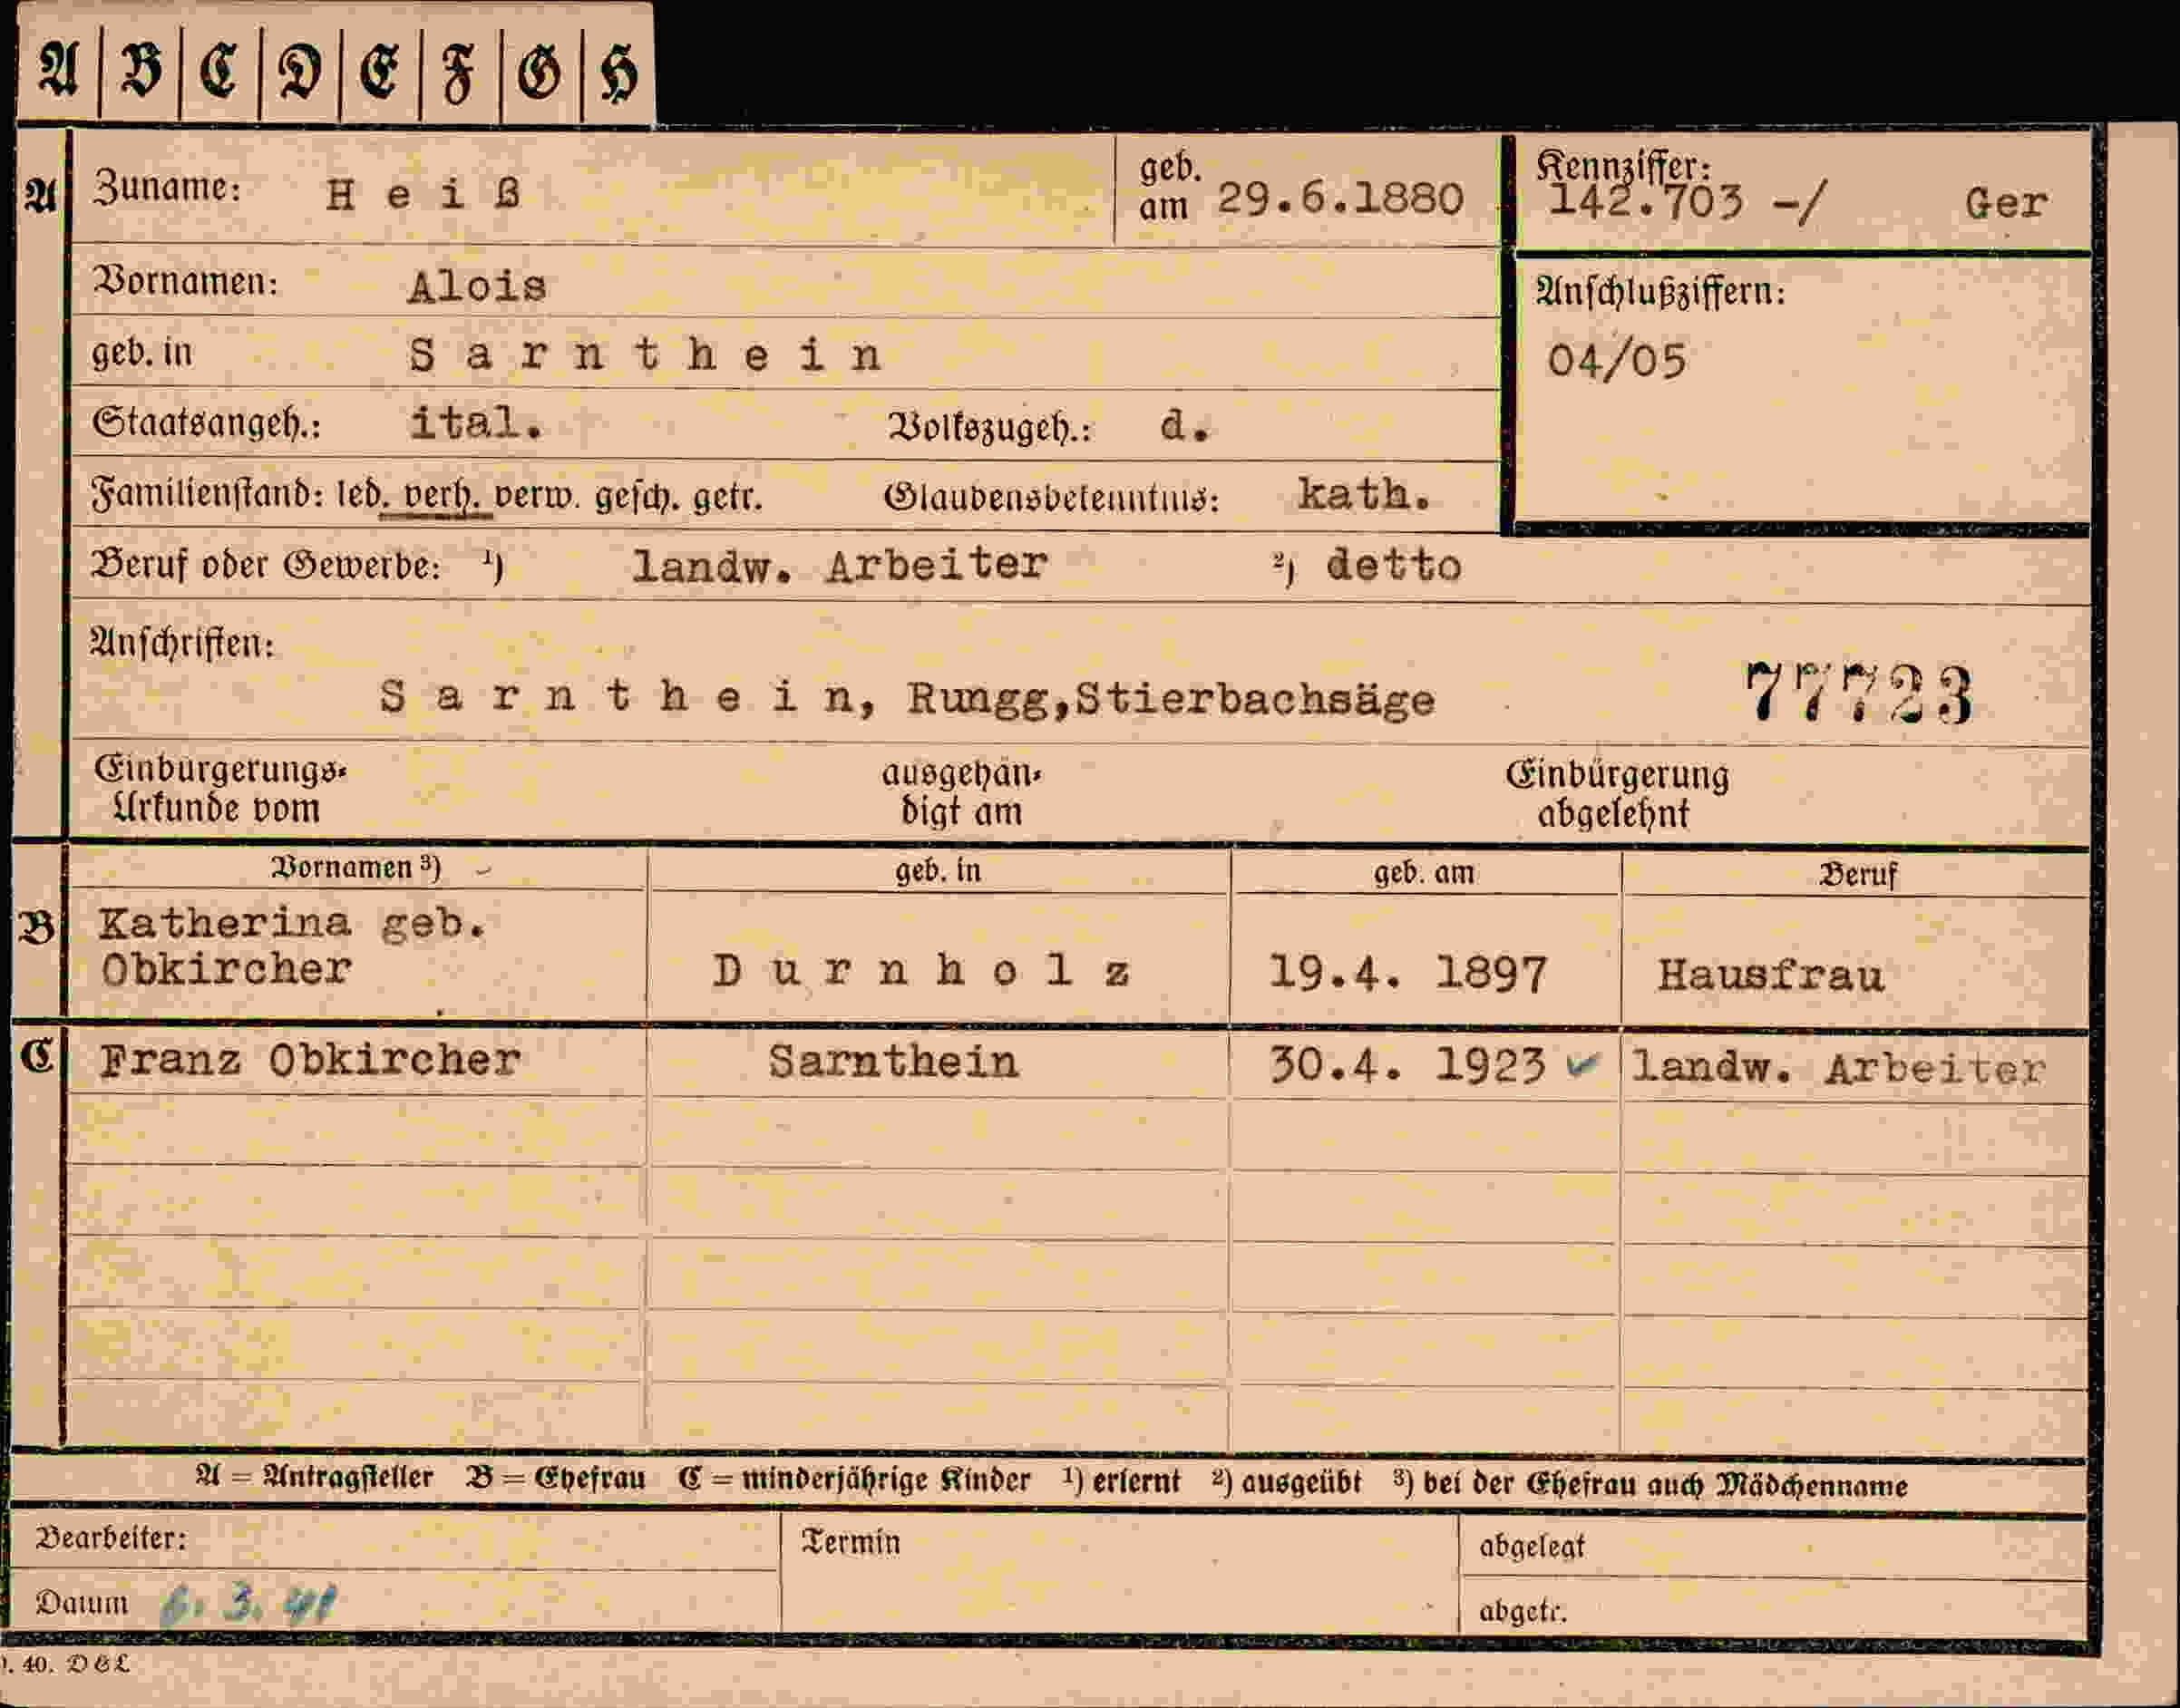 A B C D E F G H
A Zuname: Heiß geb. am 29.6.1880 Kennziffer: 142.703 -/ Ger
Vornamen: Alois Anschlußziffern:
geb. in Sarnthein 04/05
Staatsangeh.: ital. Volkszugeh.: d.
Familienstand: led. verh. verw. gesch. getr. Glaubensbekenntnis: kath.
Beruf oder Gewerbe: ¹) landw. Arbeiter ²) detto
Anschriften:
Sarnthein, Rungg,Stierbachsäge 77723
Einbürgerungs- ausgehän- Einbürgerung
Urkunde vom digt am abgelehnt
Vornamen ³) geb. in geb. am Beruf
B Katherina geb.
Obkircher Durnholz 19.4. 1897 Hausfrau
C Franz Obkircher Sarnthein 30.4. 1923 landw. Arbeiter
A = Antragsteller B = Ehefrau C = minderjährige Kinder ¹) erlernt ²) ausgeübt ³) bei der Ehefrau auch Mädchenname
Bearbeiter: Termin abgelegt
Datum 6. 3. 41 abgetr.
40. D